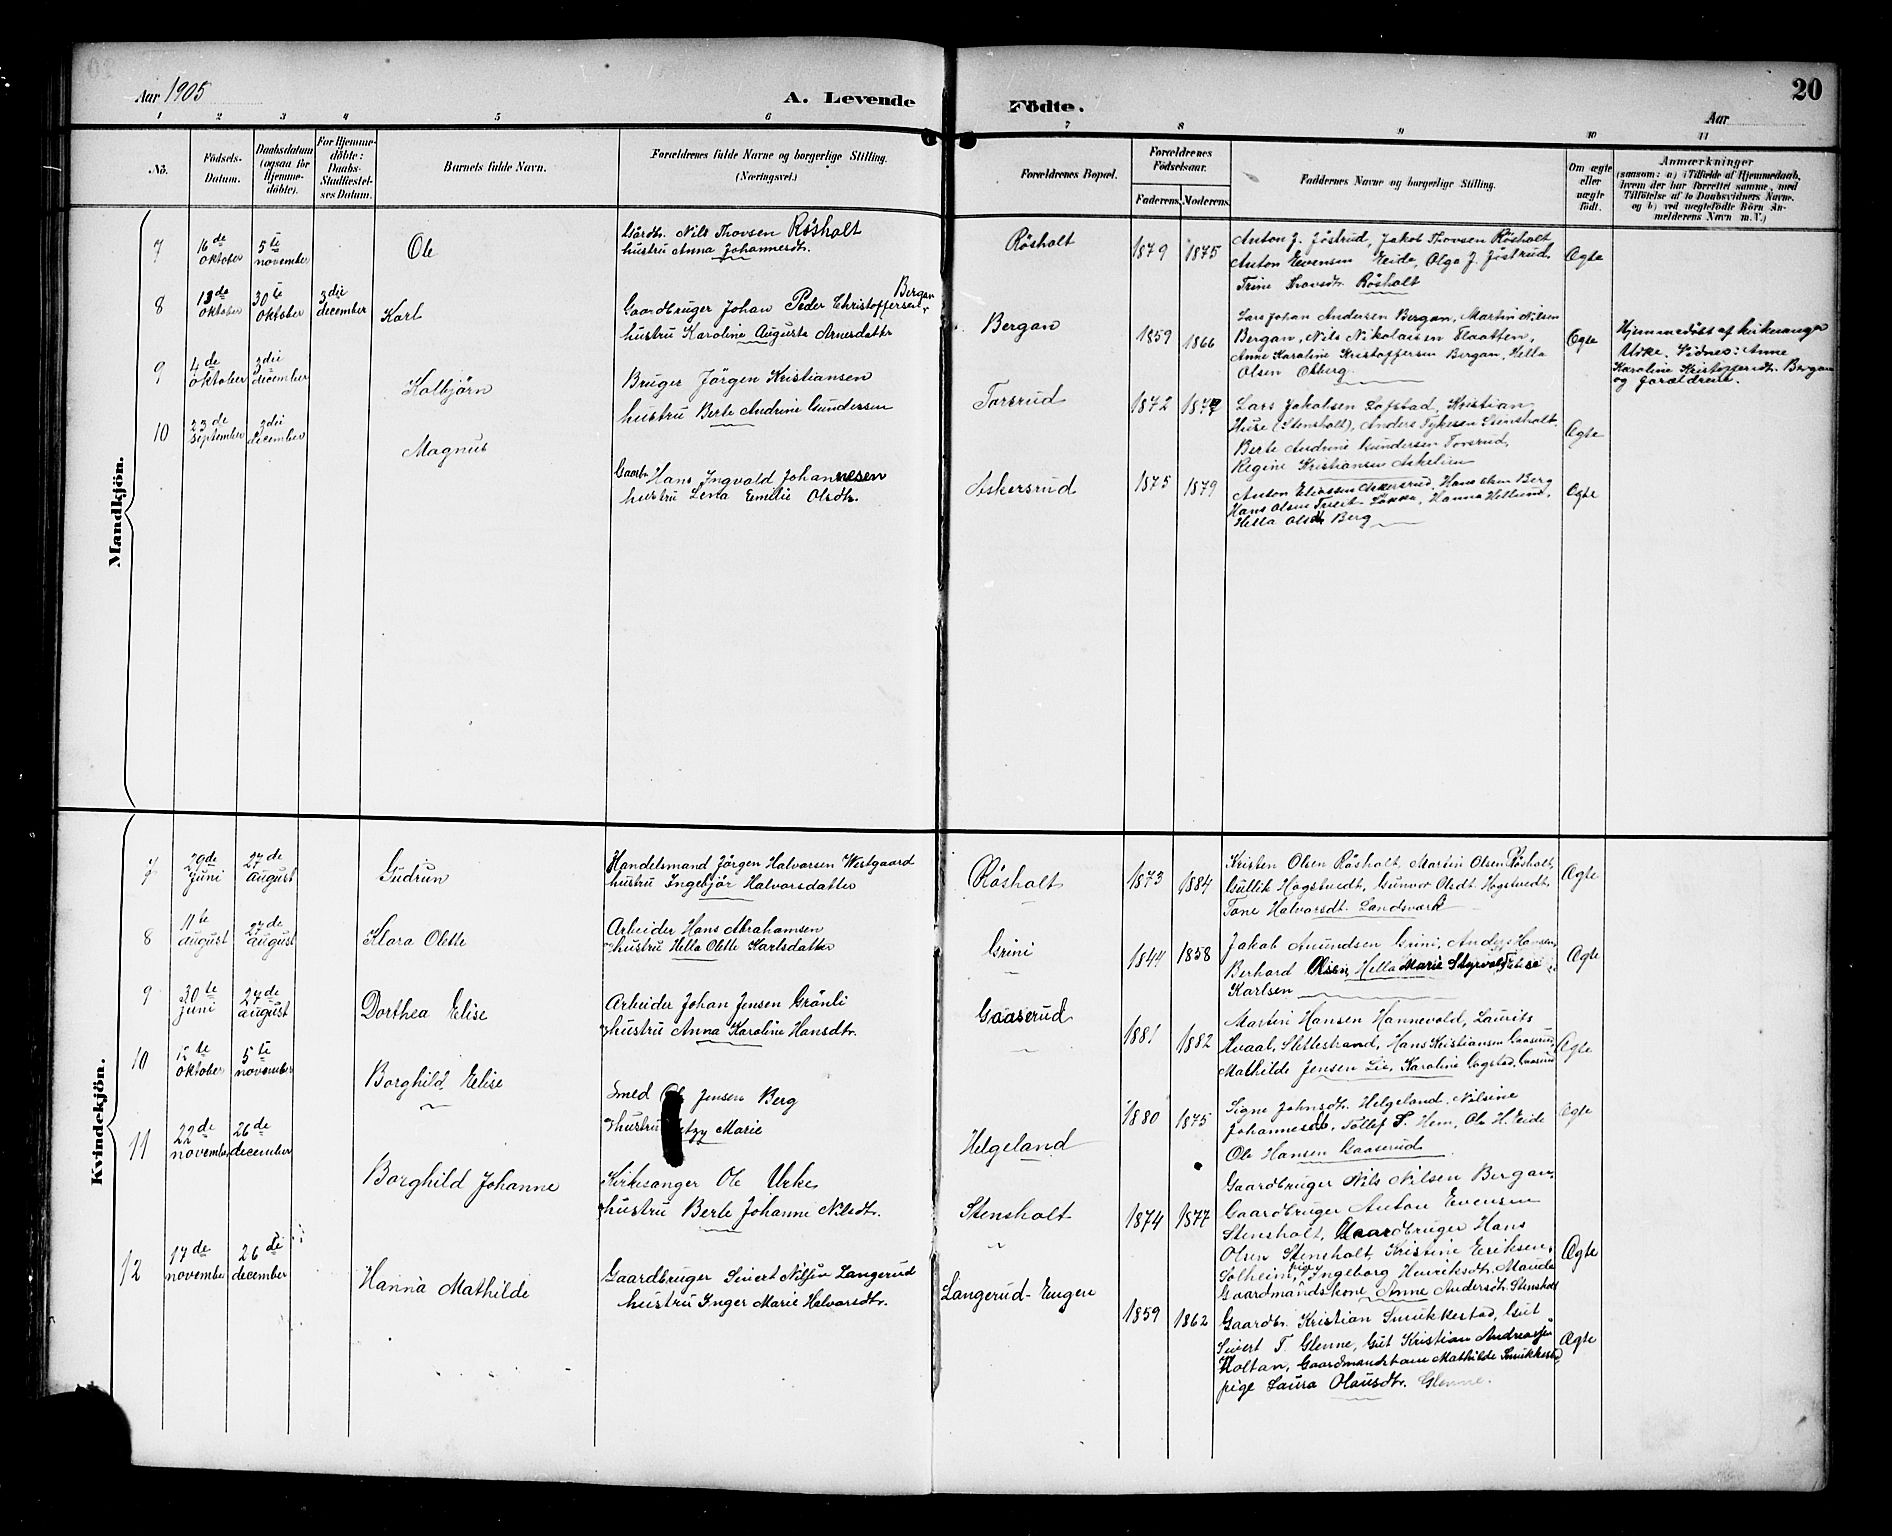 Aar 1905
A. Levende
Födte.
Aar
20
1 2 3 4 5 6 7 8 9 10 11
No.
Födsels-
Datum.
Daabsdatum
(ogsaa for
Hjemme-
döbte).
For Hjemme-
döbte:
Daabs-
Stadfæstel-
ses Datum.
Barnets fulde Navn.
Forældrenes fulde Navne og borgerlige Stilling.
(Næringsvei.)
Forældrenes Bopæl.
Forældrenes
Födselsaar.
Faderens. Moderens.
Faddernes Navne og borgerlige Stilling.
Om ægte
eller
uægte
födt.
Anmærkninger
(saasom: a) i Tilfælde af Hjemmedaab,
hvem der har forrettet samme, med
Tilföielse af to Daabsvidners Navne,
og b) ved uægtefödte Börn An-
melderens Navn m. V.)
Mandkjön.
7
16de
oktober
5te
november
Ole
Gårdbr. Nils Thovsen Rösholt
hustru Anna Johannesdtr.
Rösholt
1879 1875
Anton J. Jöstrud, Jakob Thovsen Rösholt
Anton Evensen Eide, Olga J. Jöstrud
Trine Thovsdtr. Rösholt
Ægte
8
13de
oktober
30te
oktober
3die
december
Karl
Bergan
Gaardbruger Johan Peder Christoffersen
hustru Karoline Augusta Arnesdatter
Bergan
1859 1866
Lars Johan Andersen Bergan, Martin Nilsen
Bergan, Nils Nikolaisen Flaatten,
Anne Karoline Kristoffersen Bergan, Hella
Olsen Oxberg
Ægte
Hjemmedöbt af kirkesanger
Urke. Vidnes: Anne
Karoline Kristoffersdtr. Bergan
og forældrene.
9
4de
oktober
3die
december
Kolbjörn
Bruger Jörgen Kristiansen
hustru Berte Andrine Gundersen
Torsrud
1872 1877
Lars Jakobsen Lofstad, Kristian
Huse (Stensholt), Anders Tykesen Stensholt
Berte Andrine Gundersen Torsrud,
Regine Kristiansen Askelien
Ægte
10
23de
september
3die
december
Magnus
Gaardbr. Hans Ingvald Johannesen
hustru Lena Emilie Olsdtr.
Askersrud
1875 1879
Anton Eliassen Askersrud, Hans Olsen Berg
Hans Olsen Lökka, Hanna Hellund,
Hella Olsdtr Berg
Ægte
Kvindekjön.
7
29de
Juni
27de
august
Gudrun
Handelsmand Jörgen Halvorsen Westgaard
hustru Ingebjör Halvorsdatter
Rösholt
1873 1884
Kristen Olsen Rösholt, Martin Olsen Rösholt,
Gullik Hogstvedt, Gunvor Olsdt. Hogstvedt,
Tone Halvorsdt. Landsverk
Ægte
8
11te
august
27de
august
Klara Olette
Arbeider Hans Abrahamsen
hustru Hella Olette Karlsdatter
Grini
1844 1858
Jakob Amundsen Grini, Anders Hansen,
Berhard Olsen, Hella Marie Styrvold, Elise
Karlsen
Ægte
9
30te
Juni
27de
august
Dorthea Elise
Arbeider Johan Jensen Grönli
hustru Anna Karoline Hansdtr.
Gaaserud
1881 1882
Martin Hansen Hannevold, Laurits
Hvaal, Slettestrand, Hans Kristiansen Gaaserud,
Mathilde Jensen Lie, Karoline Gogstad, Gaaserud
Ægte
10
12te
oktober
5te
november
Borghild Elise
Smed Ole Jensen Berg
hustru Marie
Helgeland
1880 1875
Signe Johnsdtr. Helgeland, Nilsine
Johannesdtr, Tollef T. Hem, Ole H. Eide
Ole Hansen Gaaserud
Ægte
11
22de
november
26de
december
Borghild Johanne
Kirkesanger Ole Urke
hustru Berte Johanne Nilsdtr.
Stensholt
1874 1877
Gaardbruger Nils Nilsen Bergan,
Gaardbruger Anton Evensen
Stensholt, Gaardbruger Hans
Olsen Stensholt, Kristine Eriksen,
Solheim, pige Ingeborg Henriksdtr. Maude
Gaardmandskone Anne Andersdtr. Stensholt
Ægte
12
17de
november
26de
december
Hanna Mathilde
Gaardbruger Sivert Nilsen Langerud
hustru Inger Marie Halvorsdtr.
Langerud-Engen
1859 1862
Gaardbr. Kristian Smukkestad, Gut
Sivert T. Glenne, Gut Kristian Andreassen
Holtan, Gaardmandskone Mathilde Smukkestad
pige Laura Olausdtr. Glenne.
Ægte